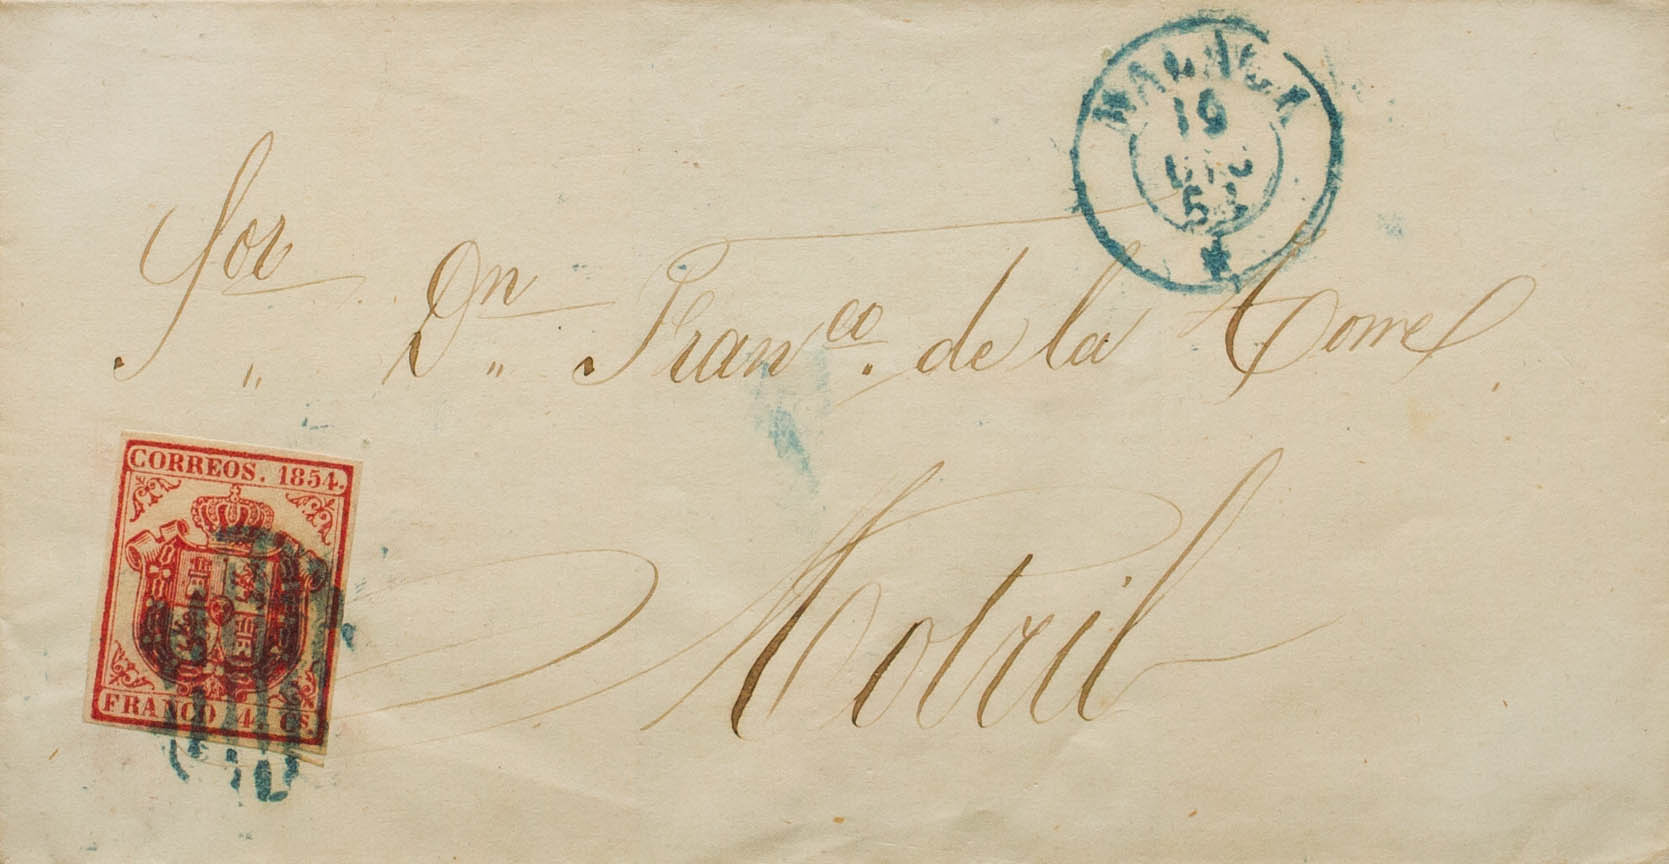 MALAGA
19
DIC
54
Sor " Dn " Franco. de la Torre
Motril
CORREOS. 1854.
FRANCO 4 CS.